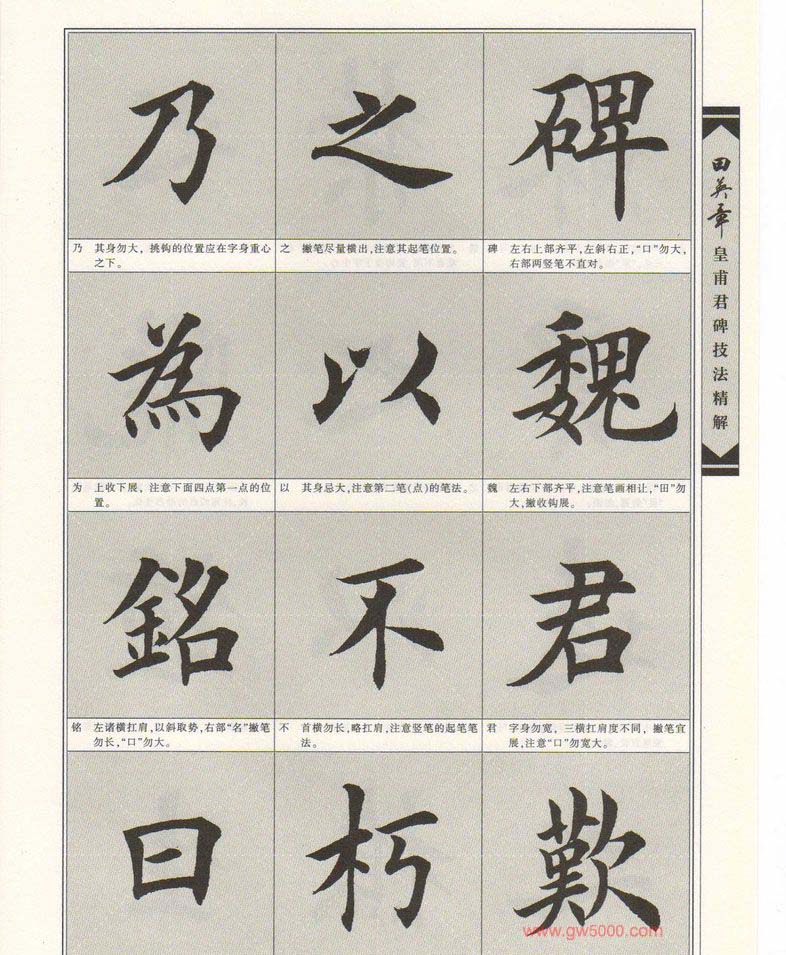 乃 之 碑
乃 其身勿大，挑钩的位置应在字身重心
之下。
之 撇笔尽量横出,注意其起笔位置。
碑 左右上部齐平,左斜右正,“口”勿大,
右部两竖笔不直对。
為 以 魏
为 上收下展，注意下面四点第一点的位
置。
以 其身忌大,注意第二笔(点)的笔法。
魏 左右下部齐平,注意笔画相让,“田”勿
大,撇收钩展。
銘 不 君
铭 左诸横扛肩,以斜取势,右部“名”撇笔
勿长,“口”勿大。
不 首横勿长,略扛肩,注意竖笔的起笔笔
法。
君 字身勿宽，三横扛肩度不同，撇笔宜
展,注意“口”勿宽大。
曰 朽 歎
www.gw5000.com
田英章
皇甫君碑技法精解